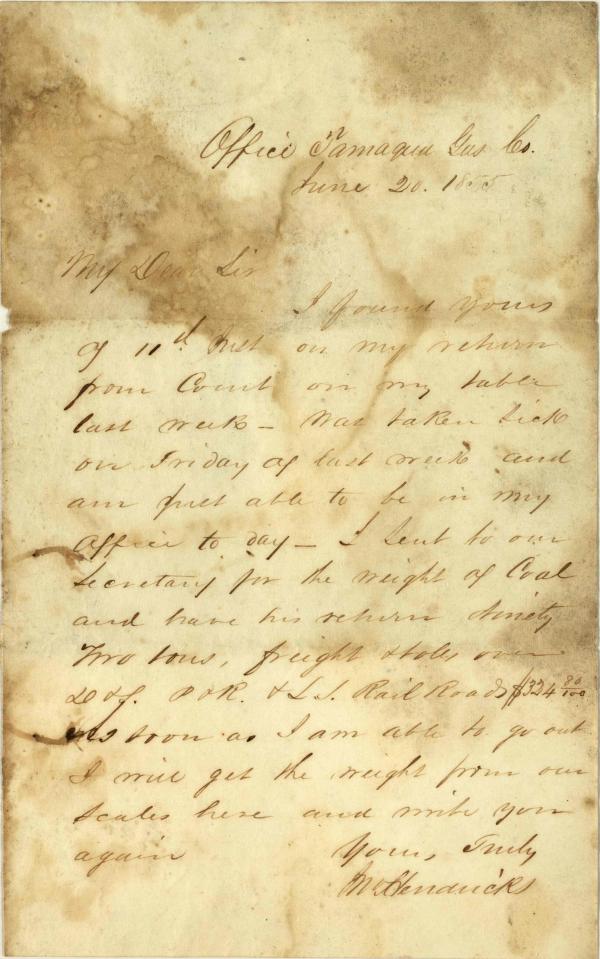 Office Tamaqua Gas Co.
June 20. 1855
My Dear Sir
I found yours
of 11th Inst on my return
from Court on my table
last week – Was taken Sick
on Friday of last week and
am just able to be in my
Office to day – I Sent to our
Secretary for the weight of Coal
and have his return Ninety
Two tons, freight & toles over
D & R. & L. S. Rail Roads $334 80/100
As soon as I am able to go out
I will get the weight from our
Scales here and write you
again Yours, Truly
Hendricks